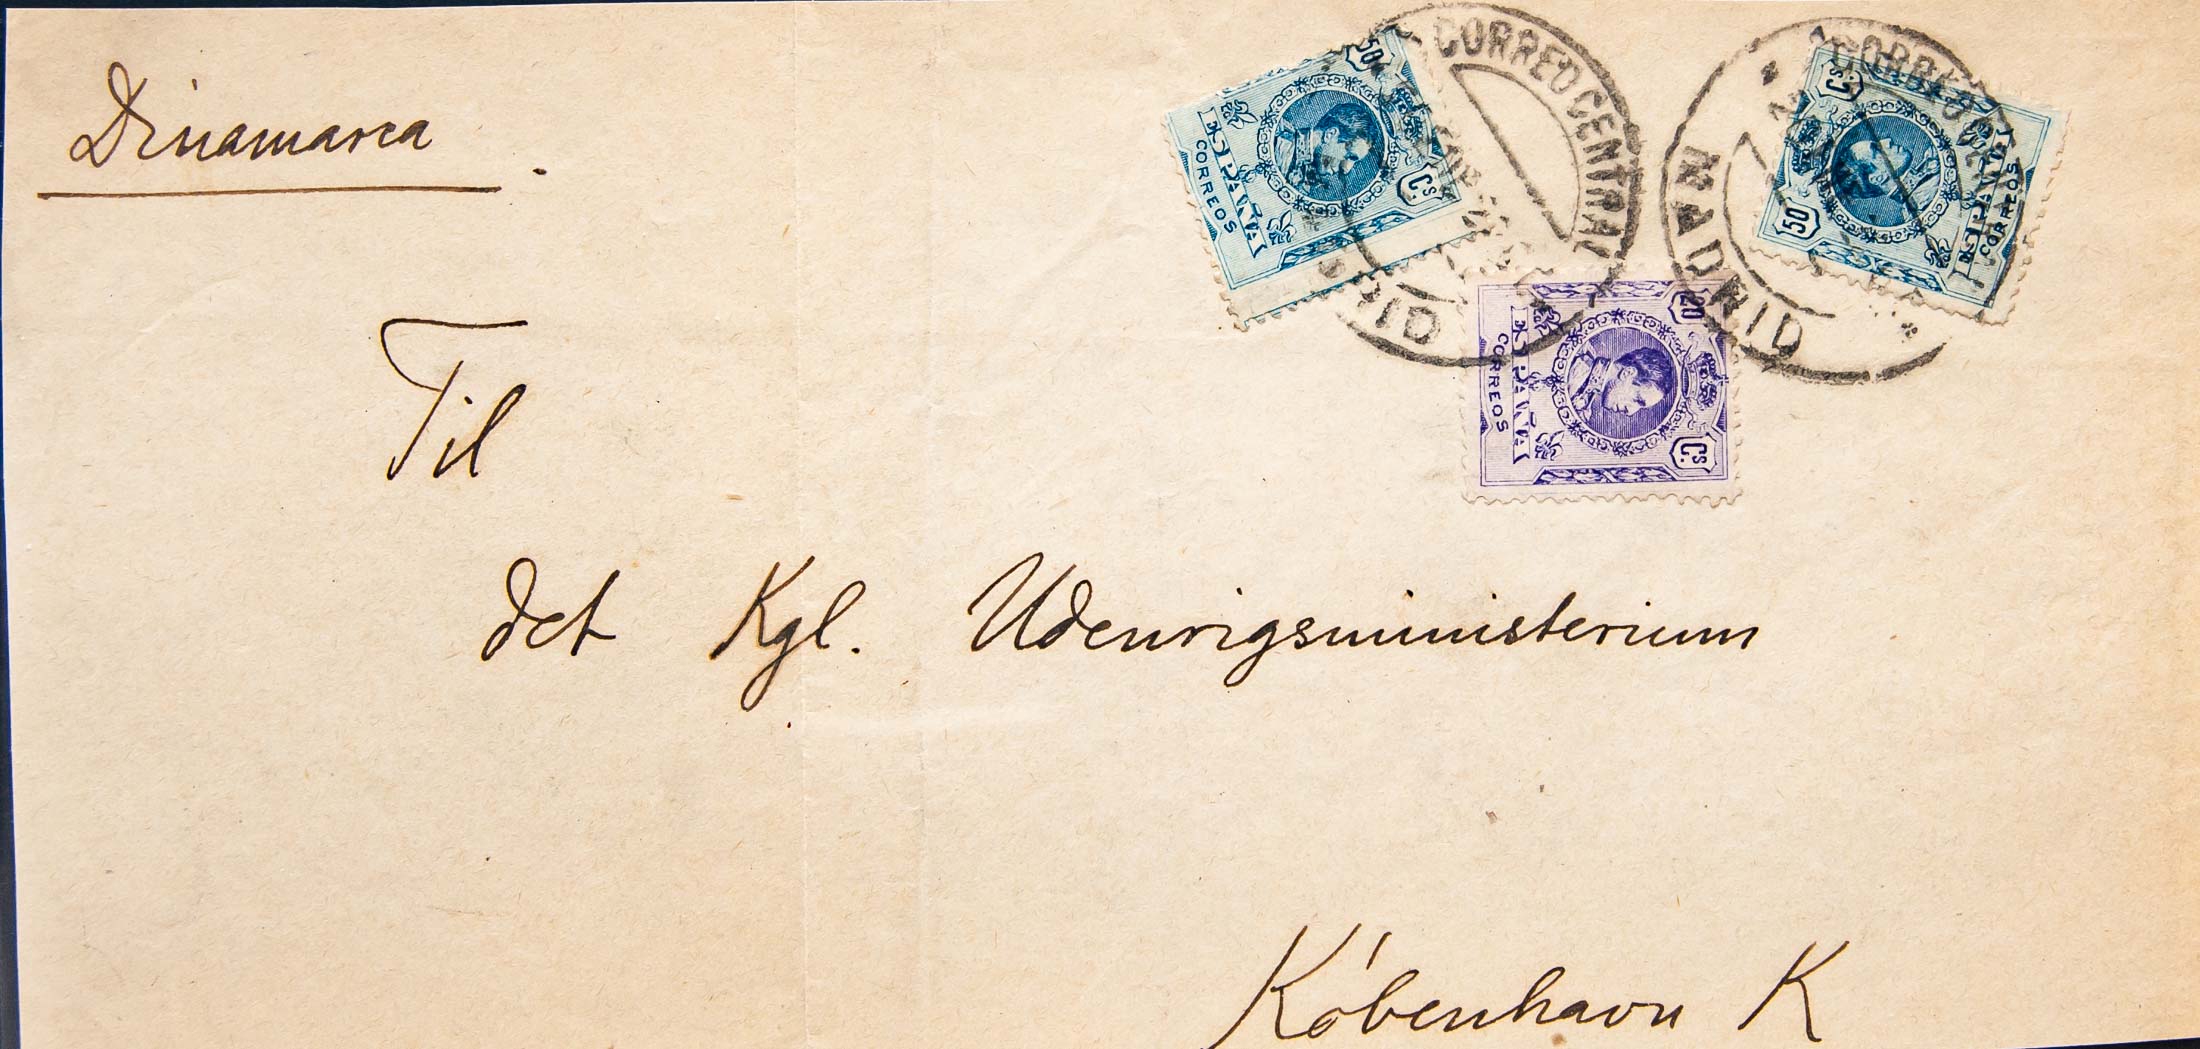 Dinamarca.
Til
det Kgl. Udenrigsministerium
København K
50 Cs.
ESPAÑA
CORREOS
CORREO CENTRAL
MADRID
20 Cs.
ESPAÑA
CORREOS
50 Cs.
ESPAÑA
CORREOS
MADRID